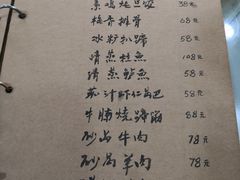 38元
梅香排骨 68元
水粉扒蹄 58元
清蒸桂魚 108元
清蒸鲈魚 58元
茄汁虾仁锅巴 58元
牛腩烧蹄筋 88元
砂锅牛肉 78元
砂锅羊肉 78元